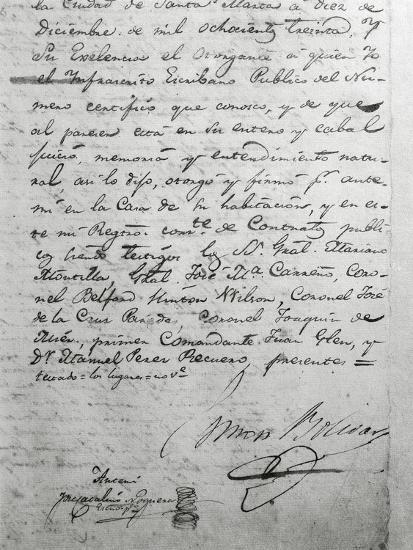 la Ciudad de Santa Marta a diez de
Diciembre de mil ochocients treinta. Y
Su Exelencia el Otorgante a quien Yo
el Infrascrito Escribano Publico del Nu-
mero certifico que conosco, y de que
al parecer está en su entero y cabal
juicio, memoria y entendimiento natu-
ral asi lo dijo, otorgó y firmó pr. ante
mí en la Casa de su habitación, y en es-
te mi Registro corrte. de Contratos publi-
cos siendo testigos los SS. Gral. Mariano
Montilla Gral. José Ma. Carreño, Coro-
nel Belford Hinton Wilson, Coronel José
de la Cruz Paredes, Coronel Joaquin de
Mier, primer Comandante Juan Glen, y
Dr. Manuel Perez Recuero presentes =
testado = los lugares = no ve.
Simon Bolivar
Ante mi
José Catalino Noguera